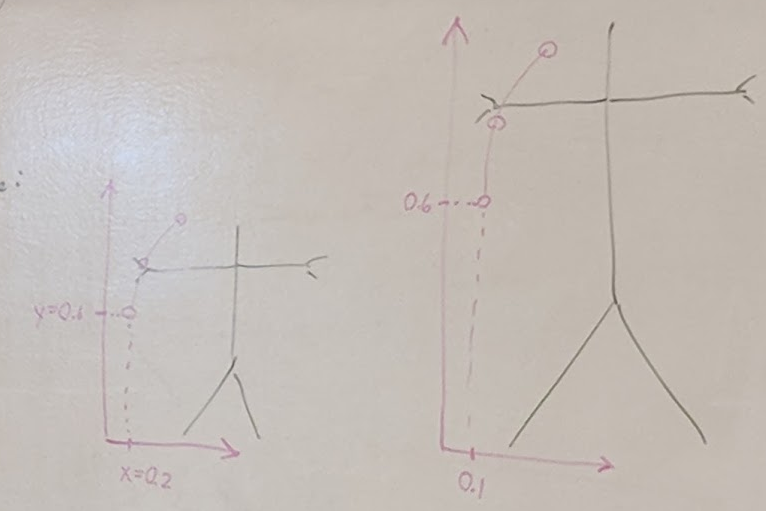 y=0.6
x=0.2
0.6
0.1